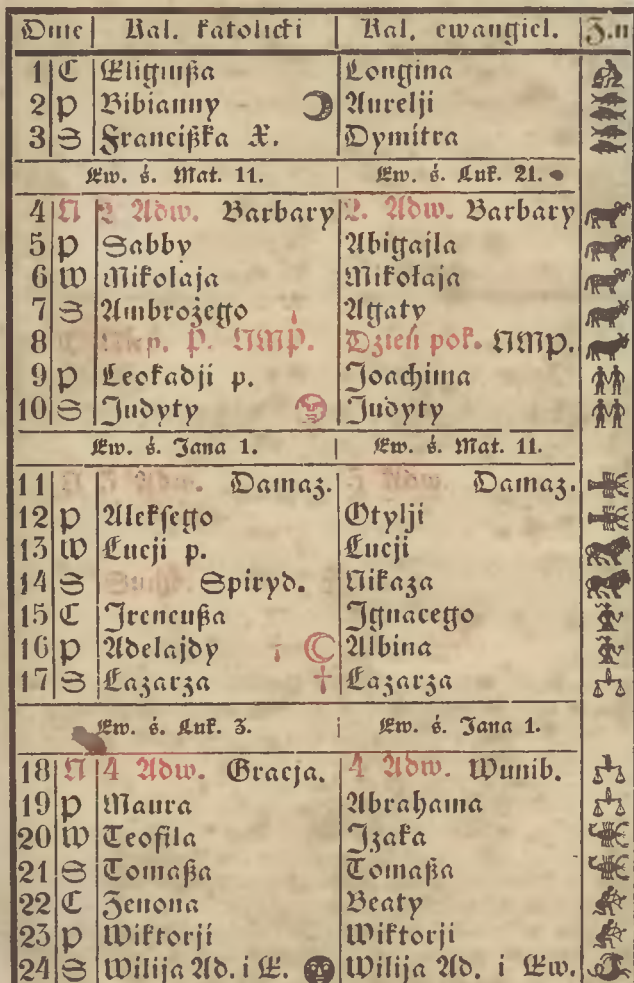 Dnie Kal. katolicki Kal. ewangiel. Z.n
1 C Eligiußa Longina
2 P Bibianny Aurelji
3 S Francißka X. Dymitra
Ew. ś. Mat. 11. Ew. ś. Łuk. 21.
4 N 2 Adw. Barbary 2. Adw. Barbary
5 P Sabby Abigajla
6 W Mikołaja Mikołaja
7 S Ambrożego Agaty
8 C Niep. P. NMP. Dzień pok. NMP.
9 P Leokadji p. Joachima
10 S Judyty Judyty
Ew. ś. Jana 1. Ew. ś. Mat. 11.
11 N 3 Adw. Damaz. 3 Adw. Damaz.
12 P Aleksego Otylji
13 W Łucji p. Łucji
14 S Suchd. Spiryd. Nikaza
15 C Ireneußa Ignacego
16 P Adelajdy Albina
17 S Łazarza † Łazarza
Ew. ś. Łuk. 3. Ew. ś. Jana 1.
18 N 4 Adw. Gracja. 4 Adw. Wunib.
19 P Maura Abrahama
20 W Teofila Izaka
21 S Tomaßa Tomaßa
22 C Zenona Beaty
23 P Wiktorji Wiktorji
24 S Wilija Ad. i E. Wilija Ad. i Ew.